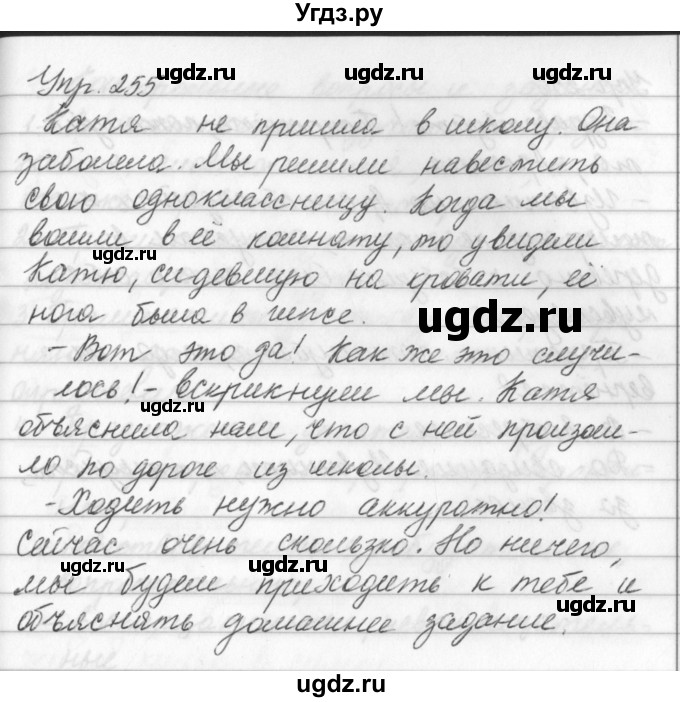 Угдз.ру
Упр. 255
ugdz.ru
ugdz.ru
Катя не пришла в школу. Она
заболела. Мы решили навестить
ugdz.ru
ugdz.ru
свою одноклассницу. Когда мы
вошли в её комнату, то увидели
ugdz.ru
ugdz.ru
Катю, сидевшую на кровати, её
нога была в гипсе.
ugdz.ru
- Вот это да! Как же это случи-
лось! - вскрикнули мы. Катя
ugdz.ru
объяснила нам, что с ней произош-
ло по дороге из школы.
ugdz.ru
ugdz.ru
- Ходить нужно аккуратно!
Сейчас очень скользко. Но ничего,
ugdz.ru
ugdz.ru
мы будем приходить к тебе и
ugdz.ru
объяснять домашнее задание.
ugdz.ru